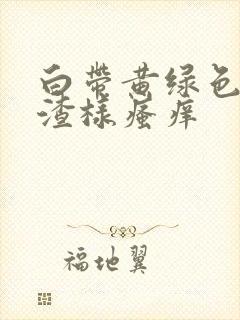 白带黄绿色
渣样瘙痒
福地翼